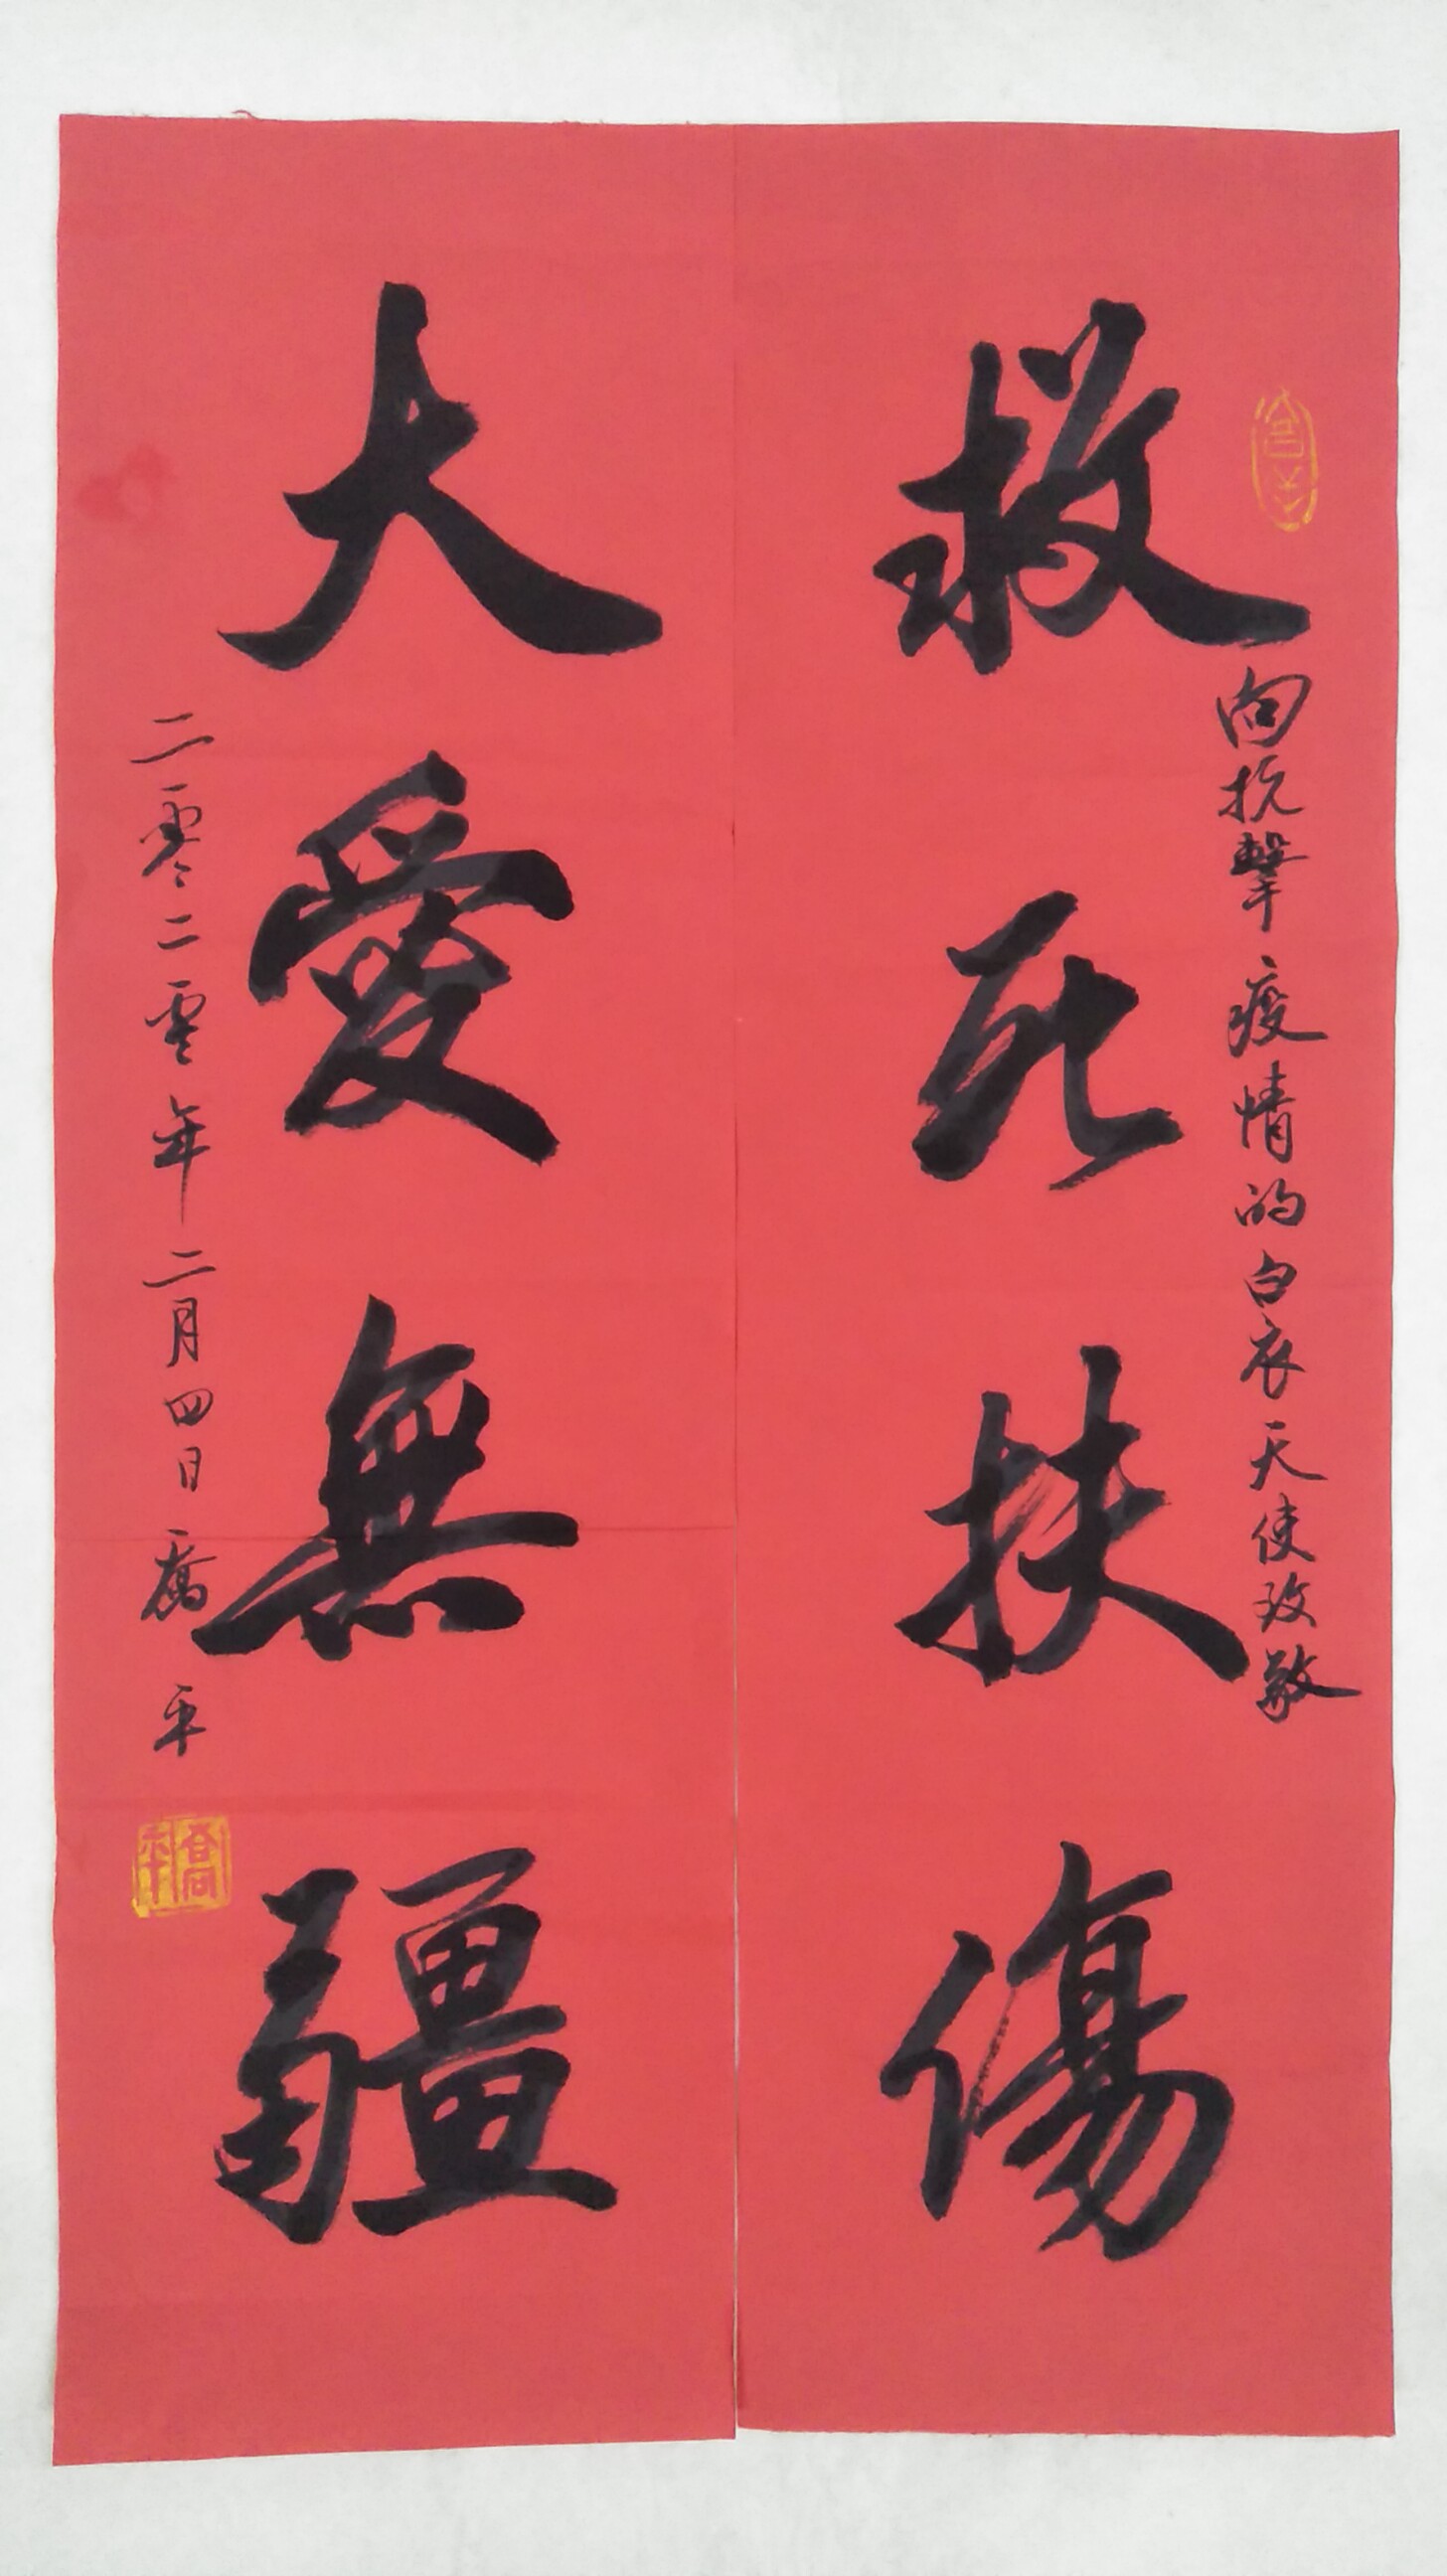 救死扶傷
向抗擊疫情的白衣天使致敬
大愛無疆
二零二零年二月四日喬平
喬平